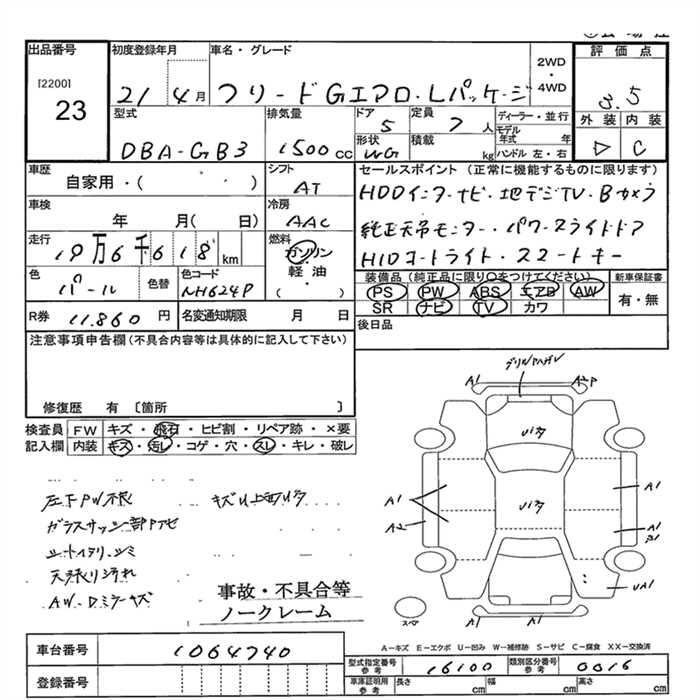 出品番号 初度登録年月 車名・グレード 2WD・4WD 評価点
[2200]
23
21 4月 フリードGエアロ・Lパッケージ 3.5
型式 排気量 ドア 定員 ディーラー・並行 外装 内装
DBA-GB3 1500cc 5 7人 モデル年式 年
形状 積載 kg ハンドル 左・右 C
WG
車歴 シフト セールスポイント (正常に機能するものに限ります)
自家用・( ) AT HDDインターナビ・地デジTV・Bカメラ
車検 冷房 純正天吊モニター・パワースライドドア
年 月( 日) AAC HIDコートライト・スマートキー
走行 燃料
19万6千618km ガソリン・軽油・( )
色 色替 色コード 装備品(純正品に限り○をつけてください) 新車保証書
パール NH624P PS PW ABS エアB AW 有・無
SR ナビ TV カワ
R券 11.860円 名変通知期限 月 日 後日品
注意事項申告欄(不具合内容等は具体的に記入して下さい)
修復歴 有〔箇所 〕
検査員記入欄 FW キズ・飛石・ヒビ割・リペア跡・×要
内装 キズ・汚レ・コゲ・穴・スレ・キレ・破レ
ガラスサッシ部サビ
天張り汚れ
AW-Dミラーキズ
事故・不具合等
ノークレーム
A1 A2P
A1 A2
A1
A1
UA1
A1
スペア
A-キズ E-エクボ U-凹み W-補修跡 S-サビ C-腐食 XX-交換済
車台番号 1064740
型式指定番号 参考 16100 類別区分番号 参考 0016
登録番号 車庫証明用 参考 長さ cm 幅 cm 高さ cm